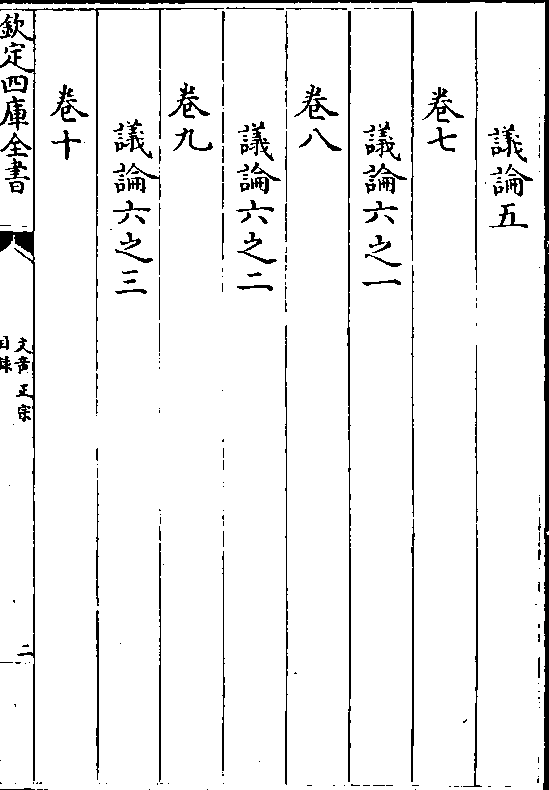 議論五
卷七
議論六之一
卷八
議論六之二
卷九
議論六之三
卷十
欽定四庫全書
文章正宗
目録
二